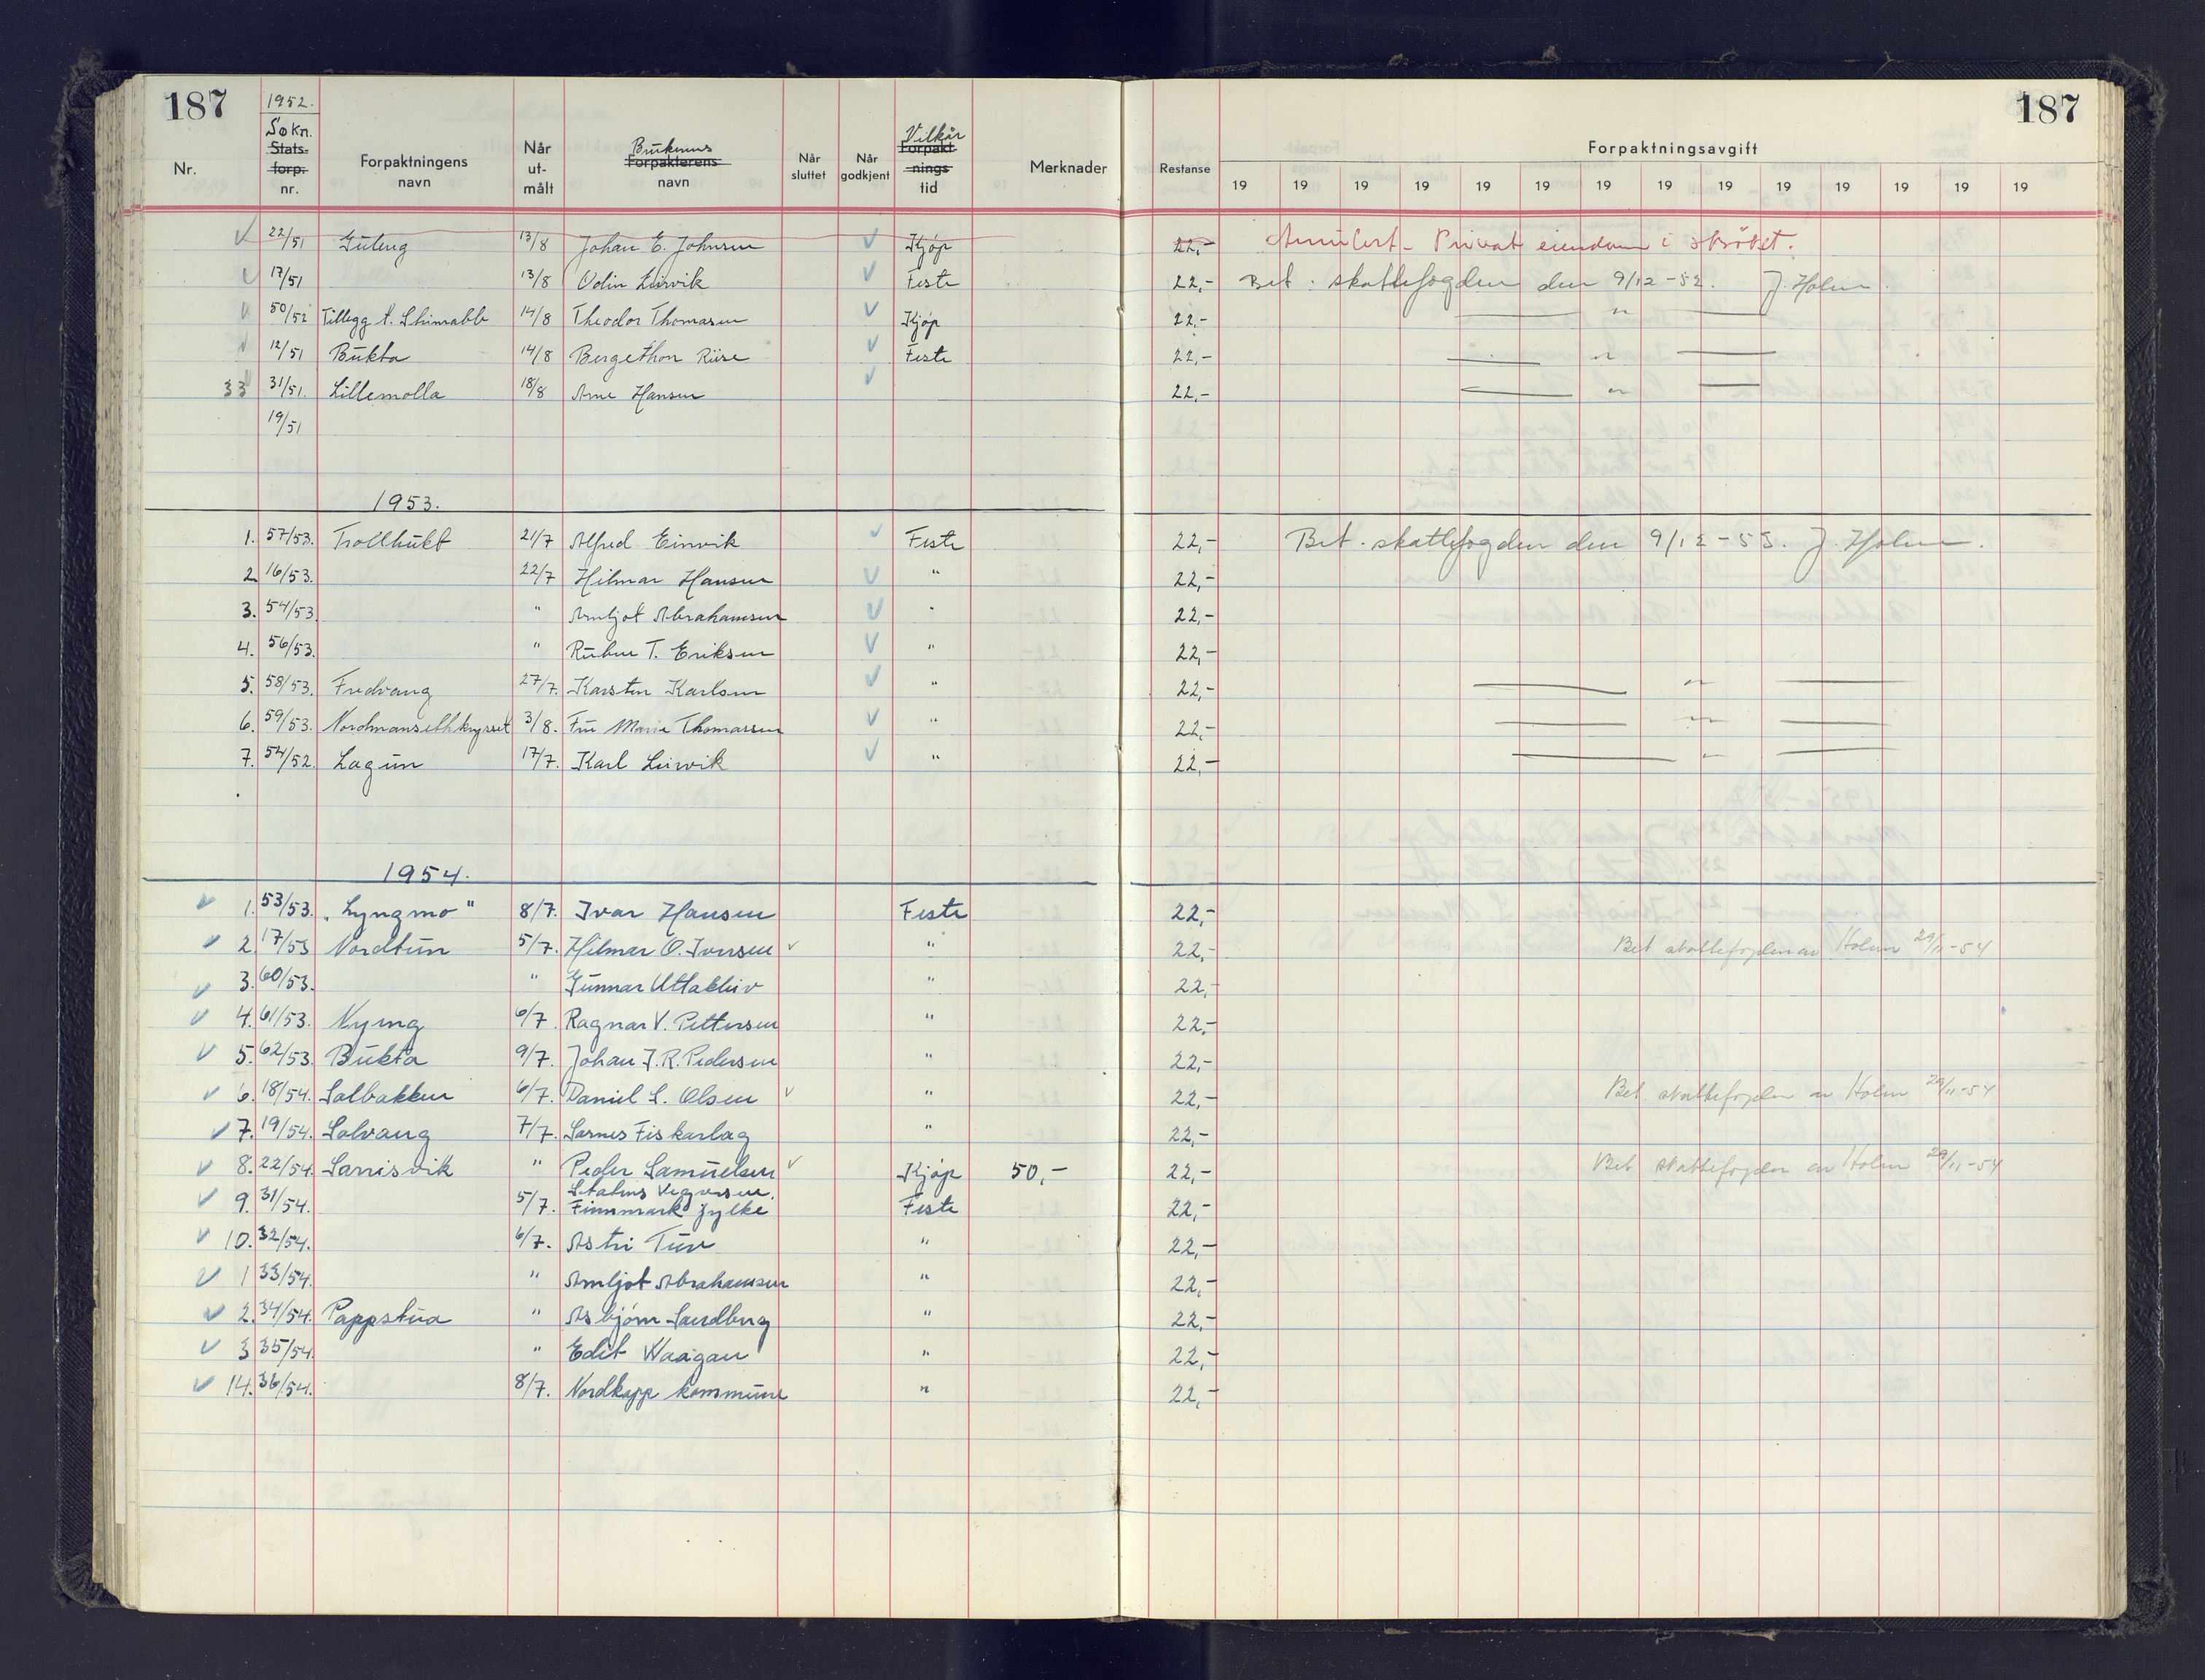 187
1952.
Nr.
Søkn.
Stats-
forp.
nr.
Forpaktningens
navn
Når
ut-
målt
Brukerens
Forpakterens
navn
Når
sluttet
Når
godkjent
Vilkår
Forpakt
nings
tid
Merknader
187
Restanse
Forpaktningsavgift
19 19 19 19 19 19 19 19 19 19 19 19 19 19
22/51 13/8 Johan E. Johnsen Kjøp 22,- Annulert - Privat eiendom i strøket.
17/51 13/8 Odin Leirvik Feste 22,- Bet. skattefogden den 9/12-52. J. Holm.
50/52 Tillegg t. 14/8 Theodor Thomasen Kjøp 22,- — " —
12/51 Bukta 14/8 Bergethon Riise Feste 22,- — " —
33 31/51. Lillemolla 18/8 Arne Hansen 22,- — " —
19/51
1953.
1. 57/53. Trollbukt 21/7 Alfred Einvik Feste 22,- Bet. skattefogden den 9/12-53. J. Holm.
2 16/53. 22/7 Hilmar Hansen " 22,-
3. 54/53. " Arnljot Abrahamsen " 22,-
4. 56/53. " Ruben T. Eriksen " 22,-
5. 58/53. Fredvang 27/7. Karsten Karlsen " 22,- — " —
6. 59/53. Nordmannsethkrysset 3/8. Fru Marie Thomassen " 22,- — " —
7. 54/52. Lagun 17/7. Karl Leirvik " 22,- — " —
1954.
1. 53/53. "Lyngmo" 8/7. Ivar Hansen Feste 22,-
2. 17/53 Nordtun 5/7. Hilmar O. Iversen " 22,- Bet skattefogden av Holm 29/11-54
3. 60/53. " Gunnar Uttakleiv " 22,-
4. 61/53. Nyeng 6/7. Ragnar V. Pettersen " 22,-
5. 62/53. Bukta 9/7. Johan J. R. Pedersen " 22,-
6. 18/54. Solbakken 6/7. Daniel L. Olsen " 22,- Bet. skattefogden av Holm 29/11-54
7. 19/54. Solvang 7/7. Sarnes Fiskarlag " 22,-
8. 22/54. Sarnisvik " Peder Samuelsen Kjøp 50,- 22,- Bet skattefogden av Holm 29/11-54
9. 31/54. 5/7. Statens Vegvesen, Finnmark fylke Feste 22,-
10. 32/54. 6/7. Astri Tuv " 22,-
1 33/54. " Arnljot Abrahamsen " 22,-
2. 34/54. Pappstua " Asbjørn Sandberg " 22,-
3 35/54. " Edit Waagan " 22,-
14. 36/54. 8/7. Nordkapp kommune " 22,-